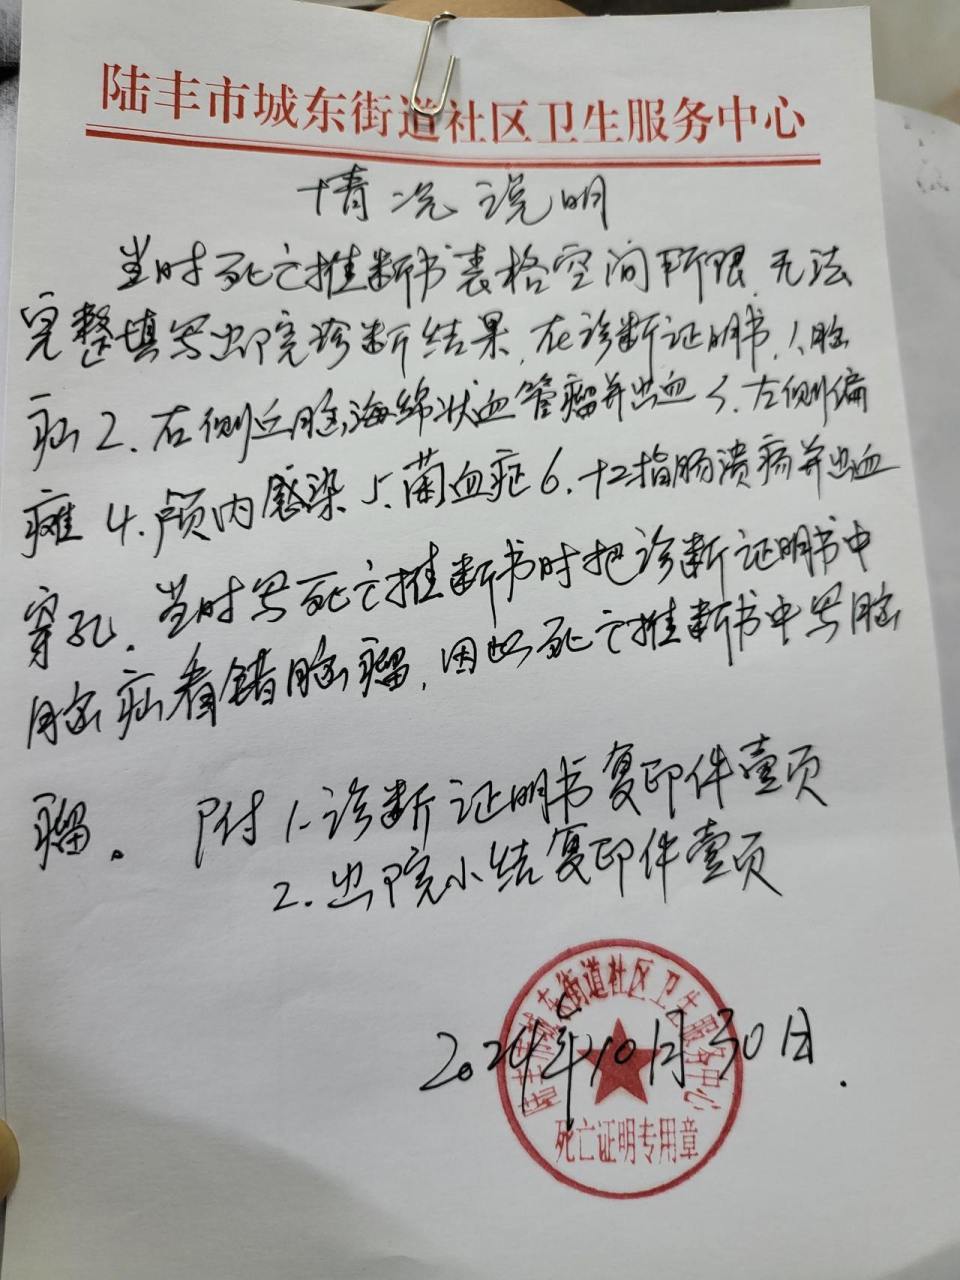 陆丰市城东街道社区卫生服务中心
情况说明
当时死亡推断书表格空间所限,无法
完整填写出院诊断结果,在诊断证明书,1、脑
疝2.右侧丘脑海绵状血管瘤并出血3.左侧偏
瘫4.颅内感染5.菌血症6.十二指肠溃疡并出血
穿孔.当时写死亡推断书时把诊断证明书中
脑疝看错脑瘤,因此死亡推断书中写脑
瘤。 附1.诊断证明书复印件壹页
2.出院小结复印件壹页
陆丰市城东街道社区卫生服务中心
2024年10月30日.
死亡证明专用章